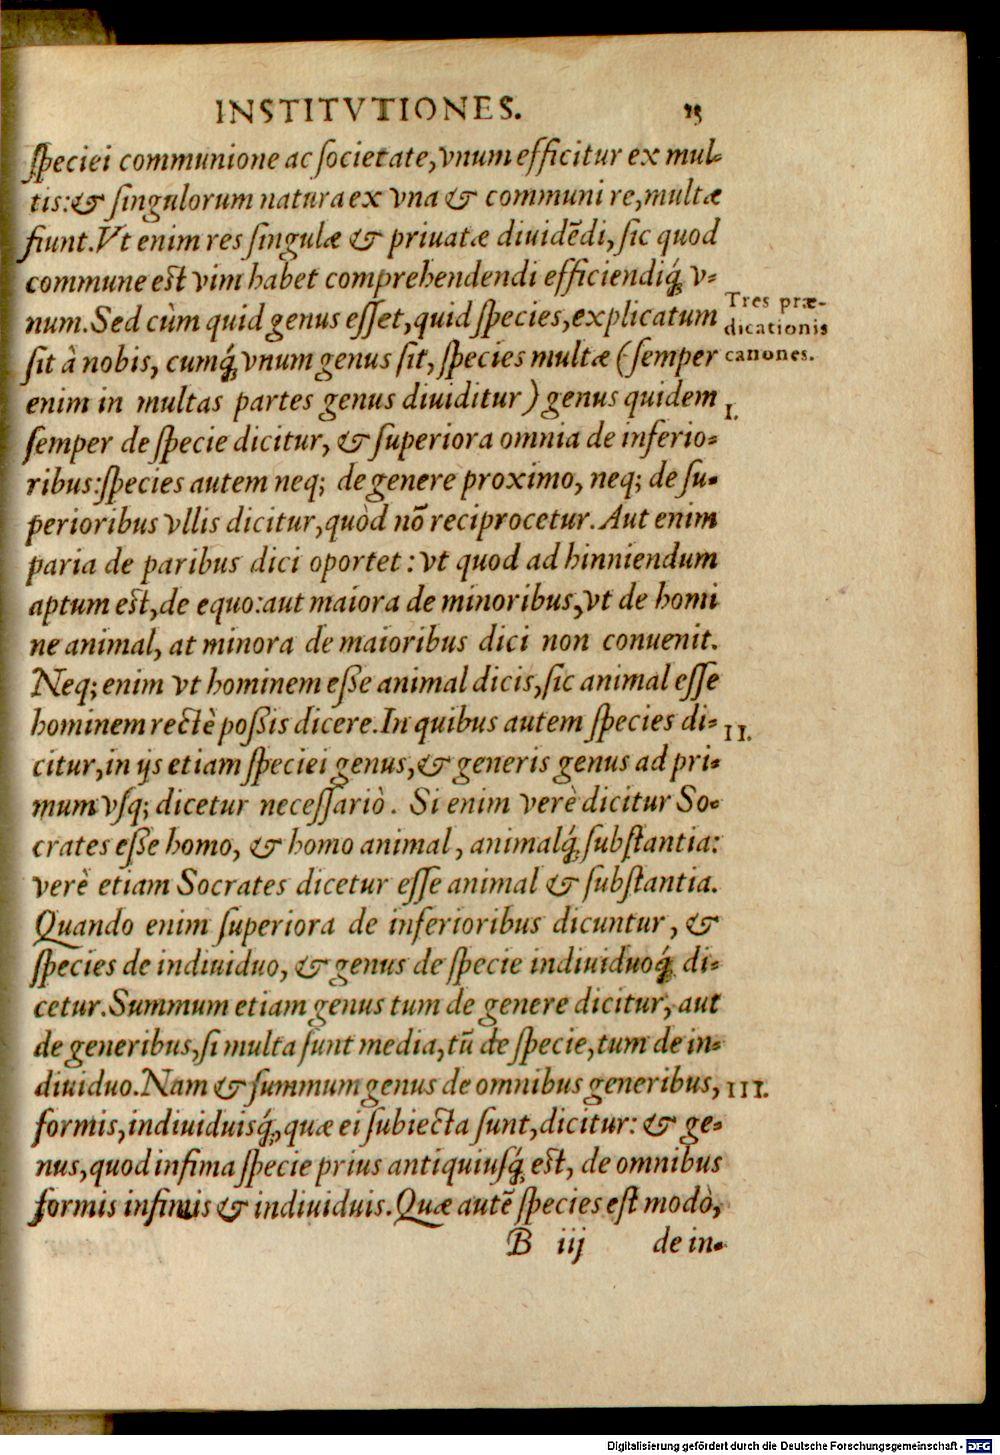 INSTITVTIONES. 15
speciei communione ac societate, vnum efficitur ex mul-
tis: & singulorum natura ex vna & communi re, multæ
fiunt. Vt enim res singulæ & priuatæ diuidẽdi, sic quod
commune est vim habet comprehendendi efficiendiq́; v-
num. Sed cùm quid genus esset, quid species, explicatum
sit à nobis, cumq́; vnum genus sit, species multæ (semper
enim in multas partes genus diuiditur) genus quidem
semper de specie dicitur, & superiora omnia de inferio-
ribus: species autem neq; de genere proximo, neq; de su-
perioribus vllis dicitur, quòd nõ reciprocetur. Aut enim
paria de paribus dici oportet: vt quod ad hinniendum
aptum est, de equo: aut maiora de minoribus, vt de homi
ne animal, at minora de maioribus dici non conuenit.
Neq; enim vt hominem eße animal dicis, sic animal esse
hominem rectè poßis dicere. In quibus autem species di-
citur, in ijs etiam speciei genus, & generis genus ad pri-
mum vsq; dicetur necessariò. Si enim verè dicitur So-
crates eße homo, & homo animal, animalq́; substantia:
verè etiam Socrates dicetur esse animal & substantia.
Quando enim superiora de inferioribus dicuntur, &
species de indiuiduo, & genus de specie indiuiduoq́; di-
cetur. Summum etiam genus tum de genere dicitur, aut
de generibus, si multa sunt media, tũ de specie, tum de in-
diuiduo. Nam & summum genus de omnibus generibus,
formis, indiuiduisq́;, quæ ei subiecta sunt, dicitur: & ge-
nus, quod infima specie prius antiquiusq́; est, de omnibus
formis infimis & indiuiduis. Quæ autẽ species est modò,
B iij de in-
Tres præ-
dicationis
canones.
I.
II.
III.
Digitalisierung gefördert durch die Deutsche Forschungsgemeinschaft - DFG